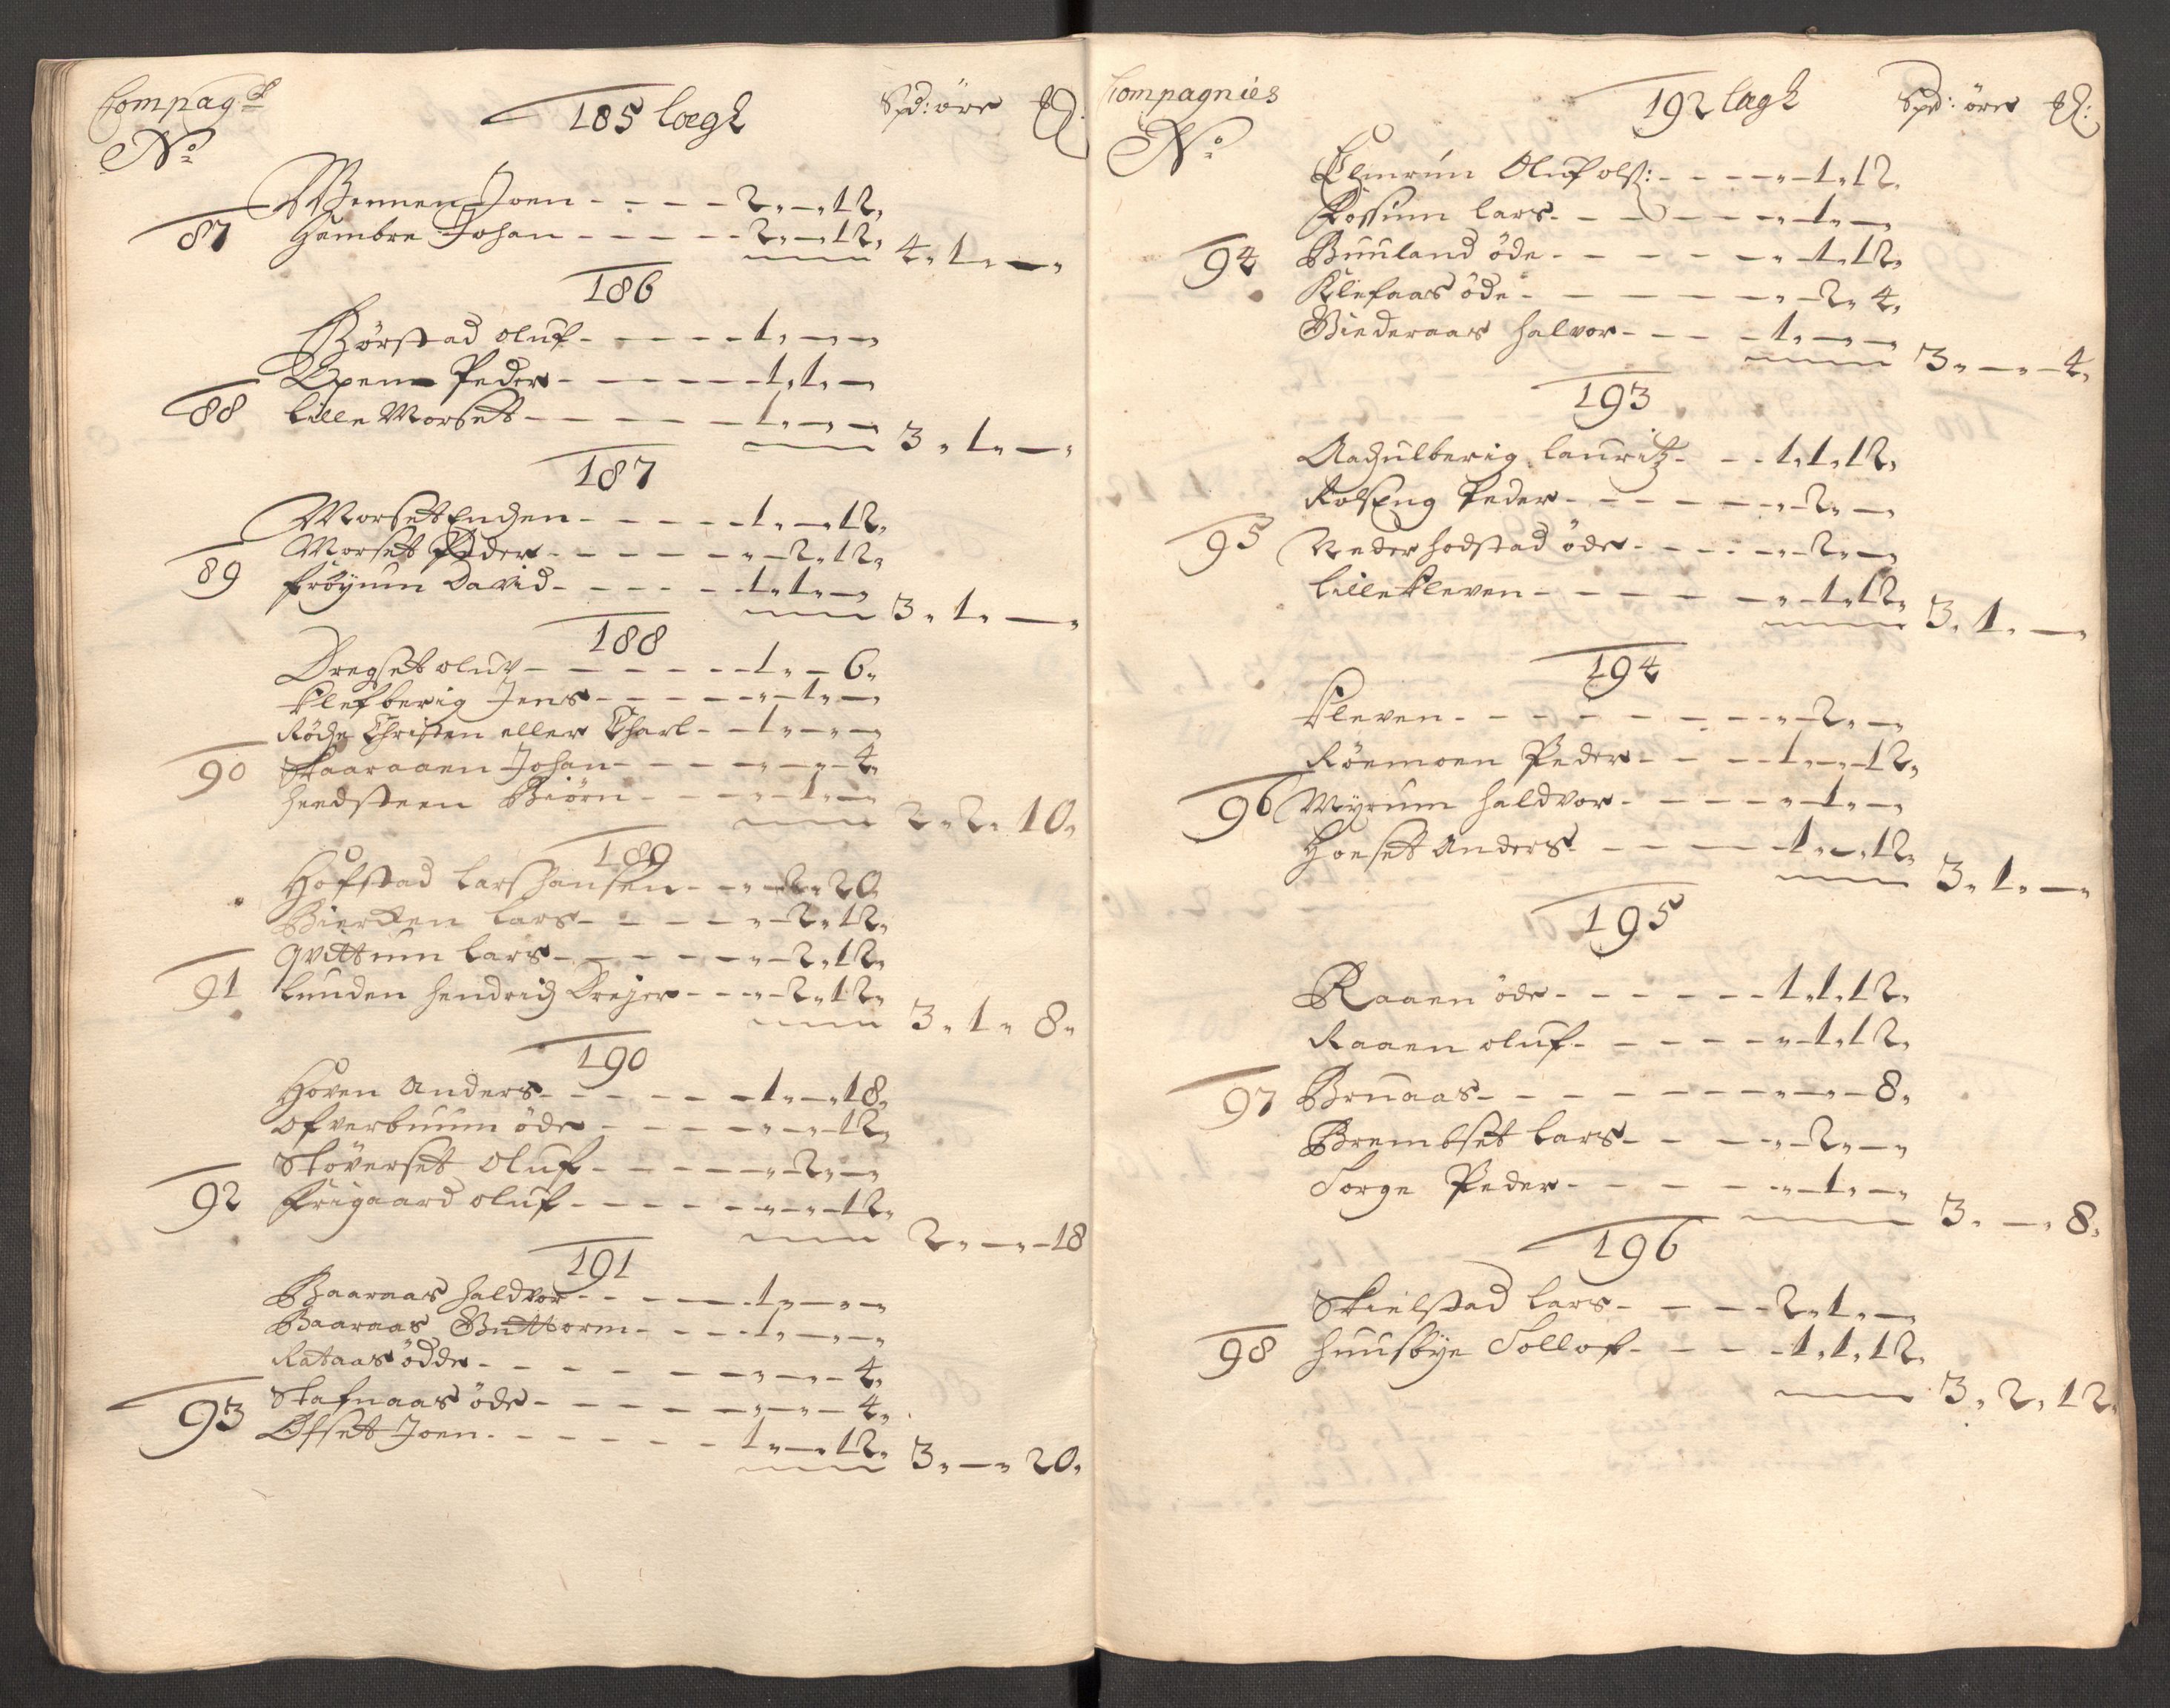 Compag
No
185 lægh Spd: öre
Mennen Joen - - - - 2 " — " 12 "
87 Hambre Johan - - - - 2 " — " 12 " 4 " 1 " — "
186
Börstad oluf - - - - 1 " — " — "
Open Peder - - - - 1 " 1 " — "
88 Lille Morset - - - - 1 " — " — " 3 " 1 " — "
187
Morset Enchen - - - - 1 " — " 12 "
Morset Peder - - - - " — 2 " 12 "
89 fröyum David - - - - 1 " 1 " — " 3 " 1 " — "
188
Dregset oluf - - - - 1 " — 6 "
Klefberig Jens - - - - " — 1 " — "
Röche Christen eller Charl - - 1 " — " — "
90 Skaaraaen Johan - - - - " — " — 4 "
heedsteen Biörn - - - - " — 1 " — " 2 " 2 " 10 "
189
Hofstad Lars Hansen - - " — 2 " 20
Biercken Lars - - - - " — 2 " 12 "
qvittum Lars - - - - " — 2 " 12 "
91 Lunden hendrich Drejer - - " — 2 " 12 " 3 " 1 " 8 "
190
Hoven Anders - - - - 1 " — 18 "
ofverbuum öde - - - - " — " — 12 "
Stöverset Oluf - - - - " — 2 " — "
92 Krigaard oluf - - - - " — " — 12 " 2 " — " — 18
191
Baaraas Haldvor - - - - 1 " — " — "
Baaraas Guttorm - - - - 1 " — " — "
Rataas ödde - - - - " — " — 4 "
93 Stafnaas öde - - - - " — " — 4 "
Ofset Joen - - - - 1 " — " 12 " 3 " — " 20 "
Compagnies
No
192 lægh Spd: öre
Elmrun Oluf ols: - - - - " — 1 " 12 "
Rossum Lars - - - - " — 1 " — "
94 Buuland öde - - - - " — 1 " 12 "
Klefaas öde - - - - " — 2 " 4 "
Biederaas Halvor - - - 1 " — " — " 3 " — " — 4 "
193
Aachulberig Lauritz - - - 1 " 1 " 12 "
Rolseng Peder - - - - " — 2 " — "
95 Neder hodstad öde - - - - " — 2 " — "
Lille Kleven - - - - " — 1 " 12 " 3 " 1 " — "
194
Kleven - - - - " — 2 " — "
Röemoen Peder - - - - 1 " — " — 12 "
96 Myrum Haldvor - - - - " — 1 " — "
Hoeset Anders - - - - 1 " — " 12 " 3 " 1 " — "
195
Raaen öde - - - - 1 " 1 " 12 "
Raaen oluf - - - - " — 1 " 12 "
97 Bruaas - - - - " — " — 8 "
Brembset Lars - - - - " — 2 " — "
Torge Peder - - - - " — 1 " — " 3 " — " 8 "
196
Skielstad Lars - - - - 2 " 1 " — "
98 Huusbye Tollof - - - - 1 " 1 " 12 "
3 " 2 " 12 "